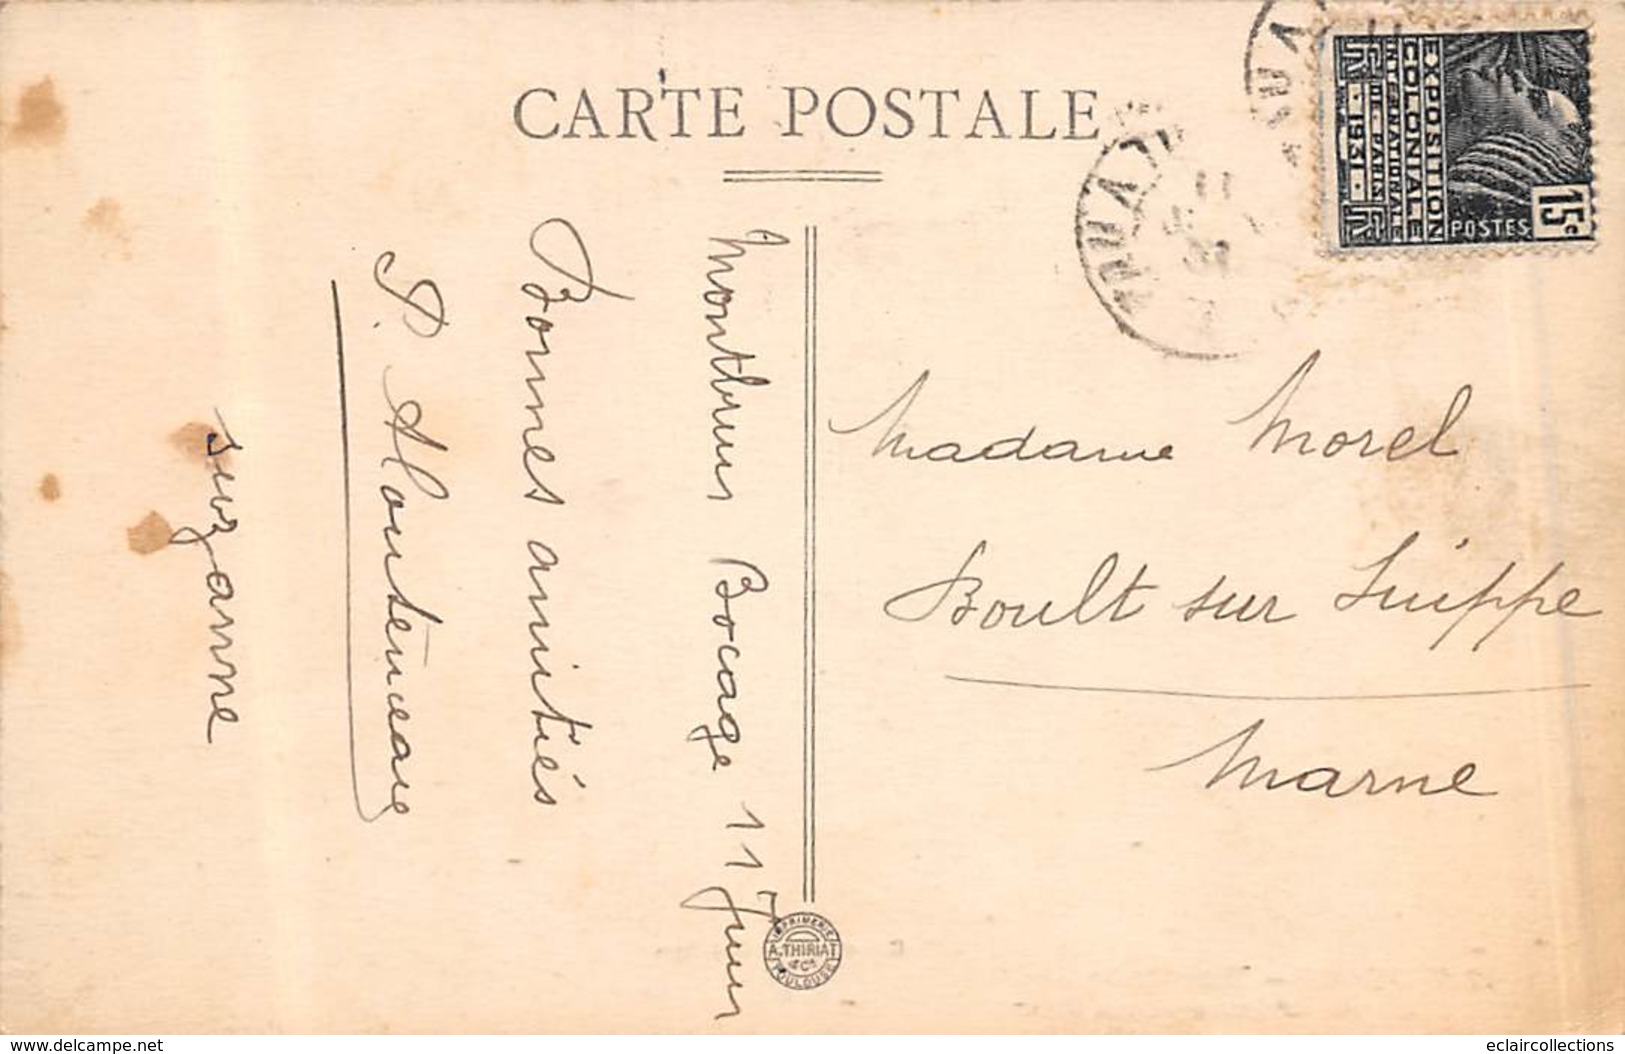 CARTE POSTALE
EXPOSITION
COLONIALE
INTERNATIONALE
DE PARIS
1931
POSTES
15c
Montbrun Bocage 11 Juin
Bonnes amitiés
Suzanne
Madame Morel
Boult sur Suippe
Marne
IMPRIMERIE
A. THIRIAT
& Cie
TOULOUSE
www.delcampe.net
eclaircollections